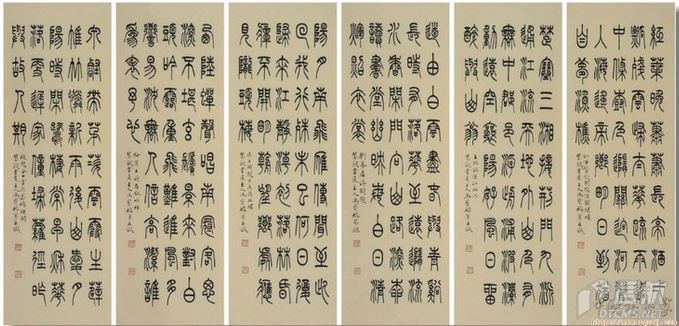 紅葉晚蕭蕭長亭酒一
瓢殘雲歸太華疏雨過
中條樹色隨山迥河聲
入海遙帝鄉明日到猶
自夢漁樵
楚塞三湘接荊門九派
通江流天地外山色有
無中郡邑浮前浦波瀾
動遠空襄陽好風日留
醉與山翁
道由白雲盡春與青谿
長時有落花至遠隨流
水香閒門向山路深柳
讀書堂幽映每白日清
輝照衣裳
陽月南飛雁傳聞至此
回我行殊未已何日復
歸來江靜潮初落林昏
瘴不開明朝望鄉處應
見隴頭梅
西陸蟬聲唱南冠客思
深不堪玄鬢影來對白
頭吟露重飛難進風多
響易沈無人信高潔誰
為表予心
泉壑帶茅茨雲霞生薜
帷竹憐新雨後山愛夕
陽時閒鷺棲常早秋花
落更遲家僮掃蘿徑昨
與故人期
DTCMS.NET